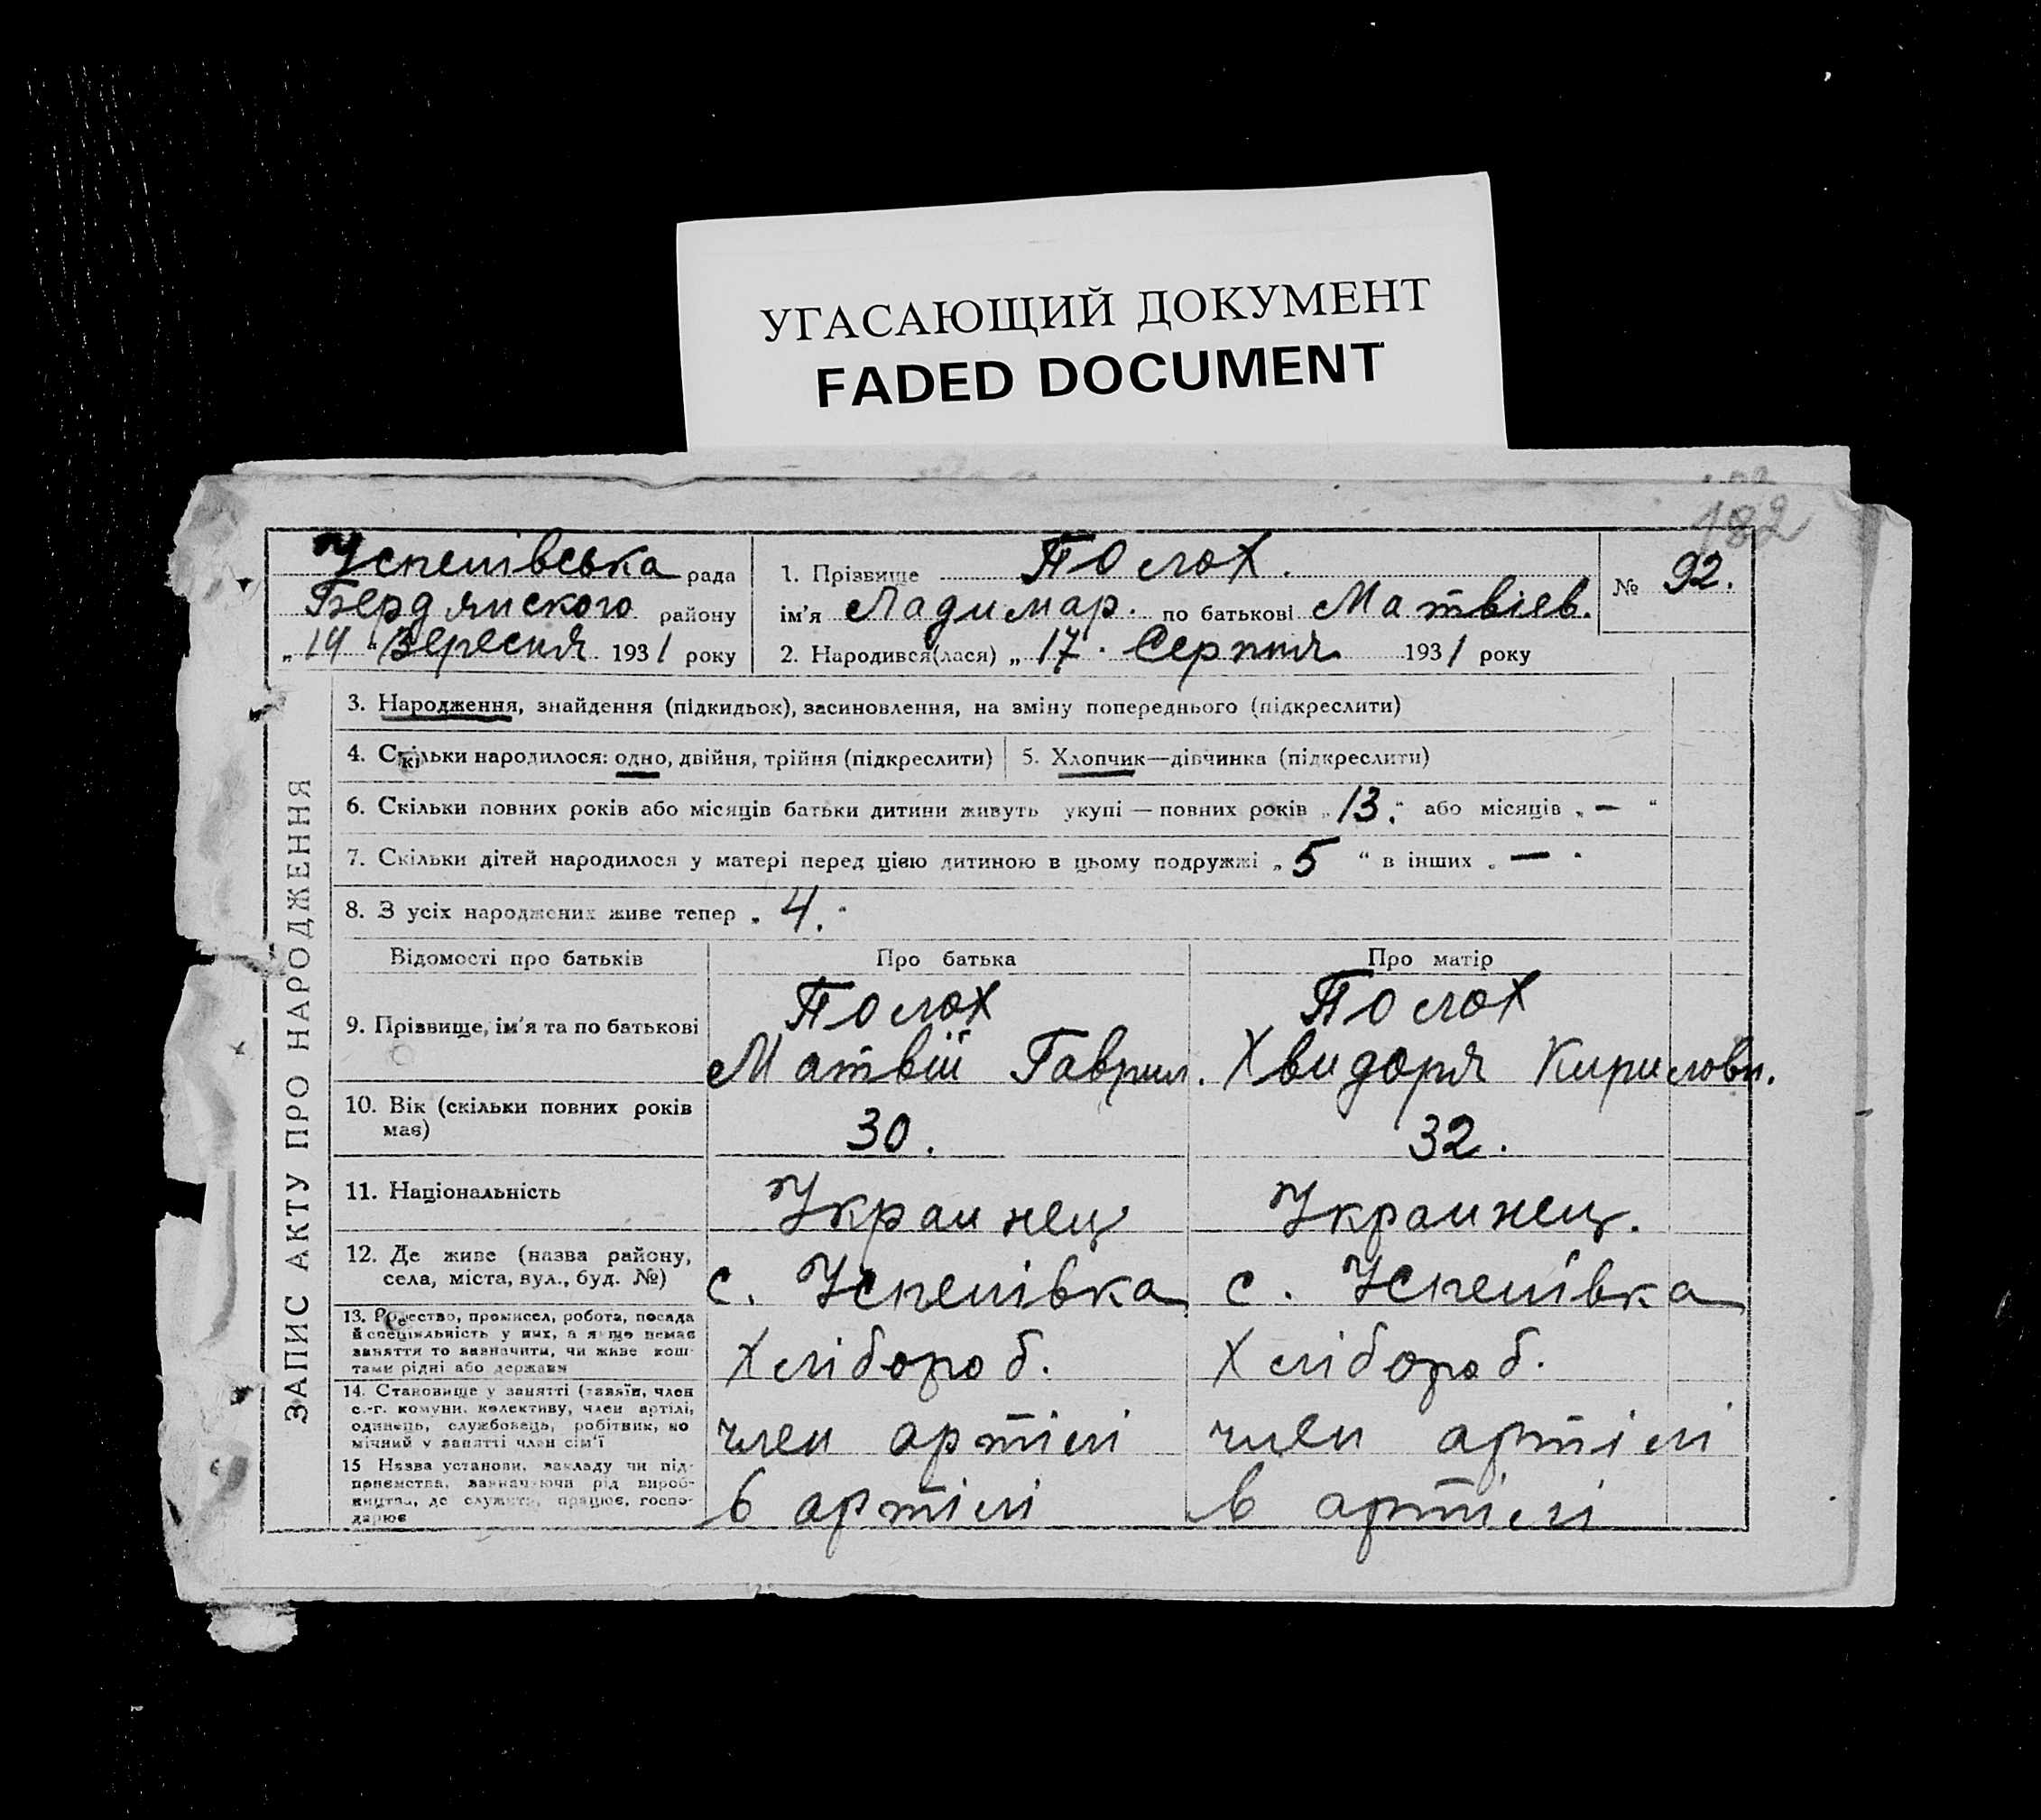 УГАСАЮЩИЙ ДОКУМЕНТ
FADED DOCUMENT
182
Успенівська рада
Бердянского району
„14 " Вересня 1931 року
1. Прізвище Полох.
ім'я Ладимар. по батькові Матвіев.
2. Народився(лася) „17. Серпня 1931 року
№ 92.
ЗАПИС АКТУ ПРО НАРОДЖЕННЯ
3. Народження, знайдення (підкидьок), засиновлення, на зміну попереднього (підкреслити)
4. Скільки народилося: одно, двійня, трійня (підкреслити)
5. Хлопчик—дівчинка (підкреслити)
6. Скільки повних років або місяців батьки дитини живуть укупі — повних років „13." або місяців „—"
7. Скільки дітей народилося у матері перед цією дитиною в цьому подружжі „5 " в інших „— "
8. З усіх народжених живе тепер „4."
Відомості про батьків Про батька Про матір
9. Прізвище, ім'я та по батькові
Полох Полох
Матвій Гаврил. Хвидоря Кирилови.
10. Вік (скільки повних років
має)
30. 32.
11. Національність
Украинец Украинец.
12. Де живе (назва району,
села, міста, вул., буд. №)
с. Успенівка с. Успенівка
13. Ремество, промисел, робота, посада
й спеціяльність у них, а якщо немає
заняття то зазначити, чи живе кош-
тами рідні або держави
Хлібороб. Хлібороб.
14. Становище у занятті (хазяїн, член
с.-г. комуни, колективу, член артілі,
одинець, службовець, робітник, по
мічний у занятті член сім'ї
член артілі член артілі
15 Назва установи, закладу чи під-
приємства, зазначаючи рід вироб-
ництва, де служить, працює, госпо-
дарює
в артілі в артілі